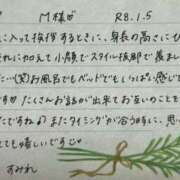 M様♡ R8.1.5
に入って挨拶するときに、身長の高さにひ
それに加えて小顔でスタイル抜群で羨まし
(笑)お風呂でもベッドでもいっぱい感じて
♡ たくさんお話が出来てお互いのことを
たですね♪ またタイミングが合う時に、
ても嬉しいです☺
すみれ